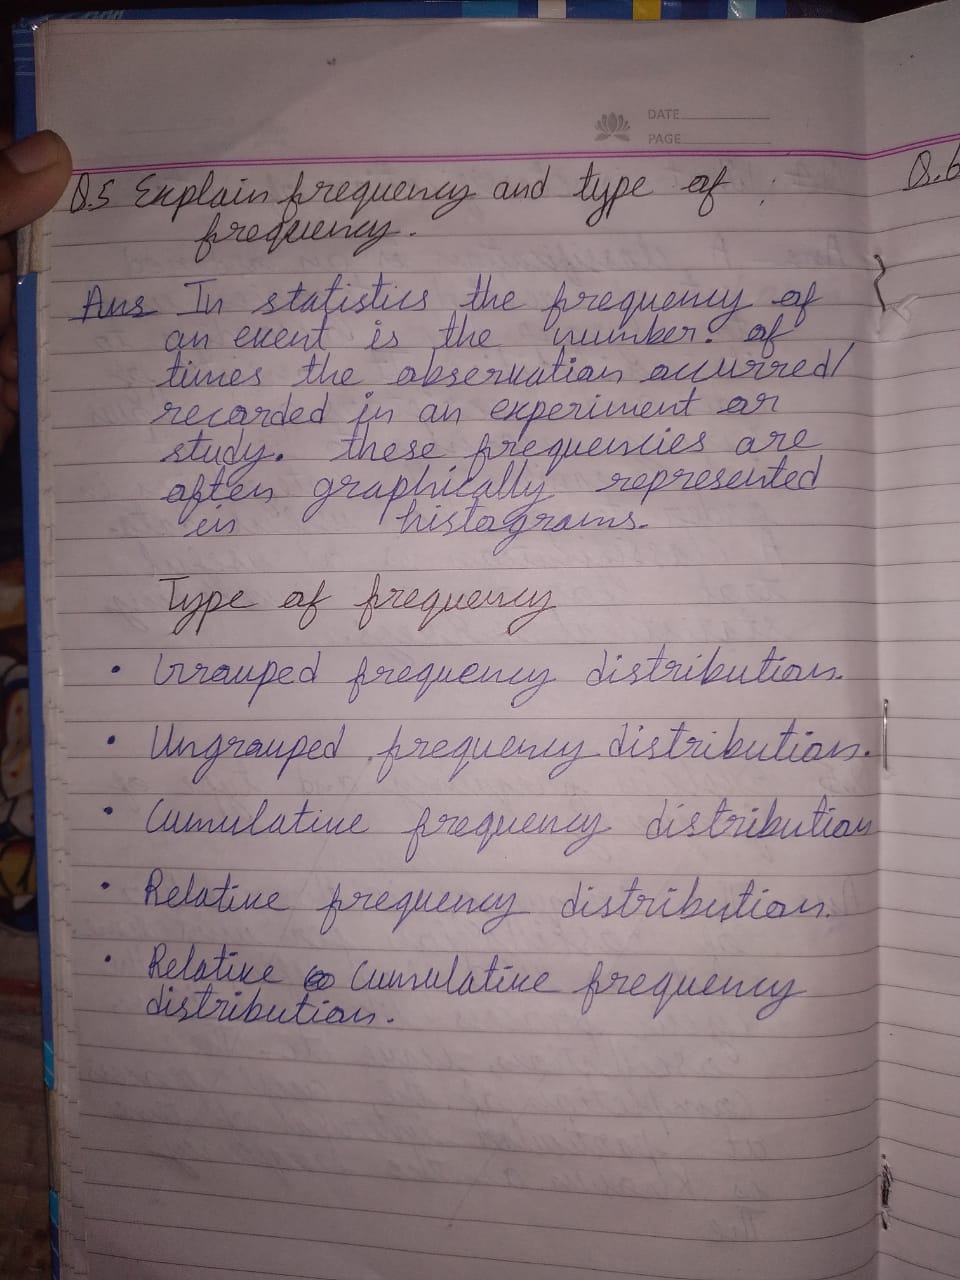 DATE
PAGE
Q.5 Explain frequency and type of
frequency.
Q.6
Ans In statistics the frequency of
an event is the number. of
times the observation occurred/
recorded in an experiment or
study. these frequencies are
often graphically represented
in histograms.
Type of frequency
• Grouped frequency distribution.
• Ungrouped frequency distribution.
• Cumulative frequency distribution
• Relative frequency distribution.
• Relative Cumulative frequency
distribution.